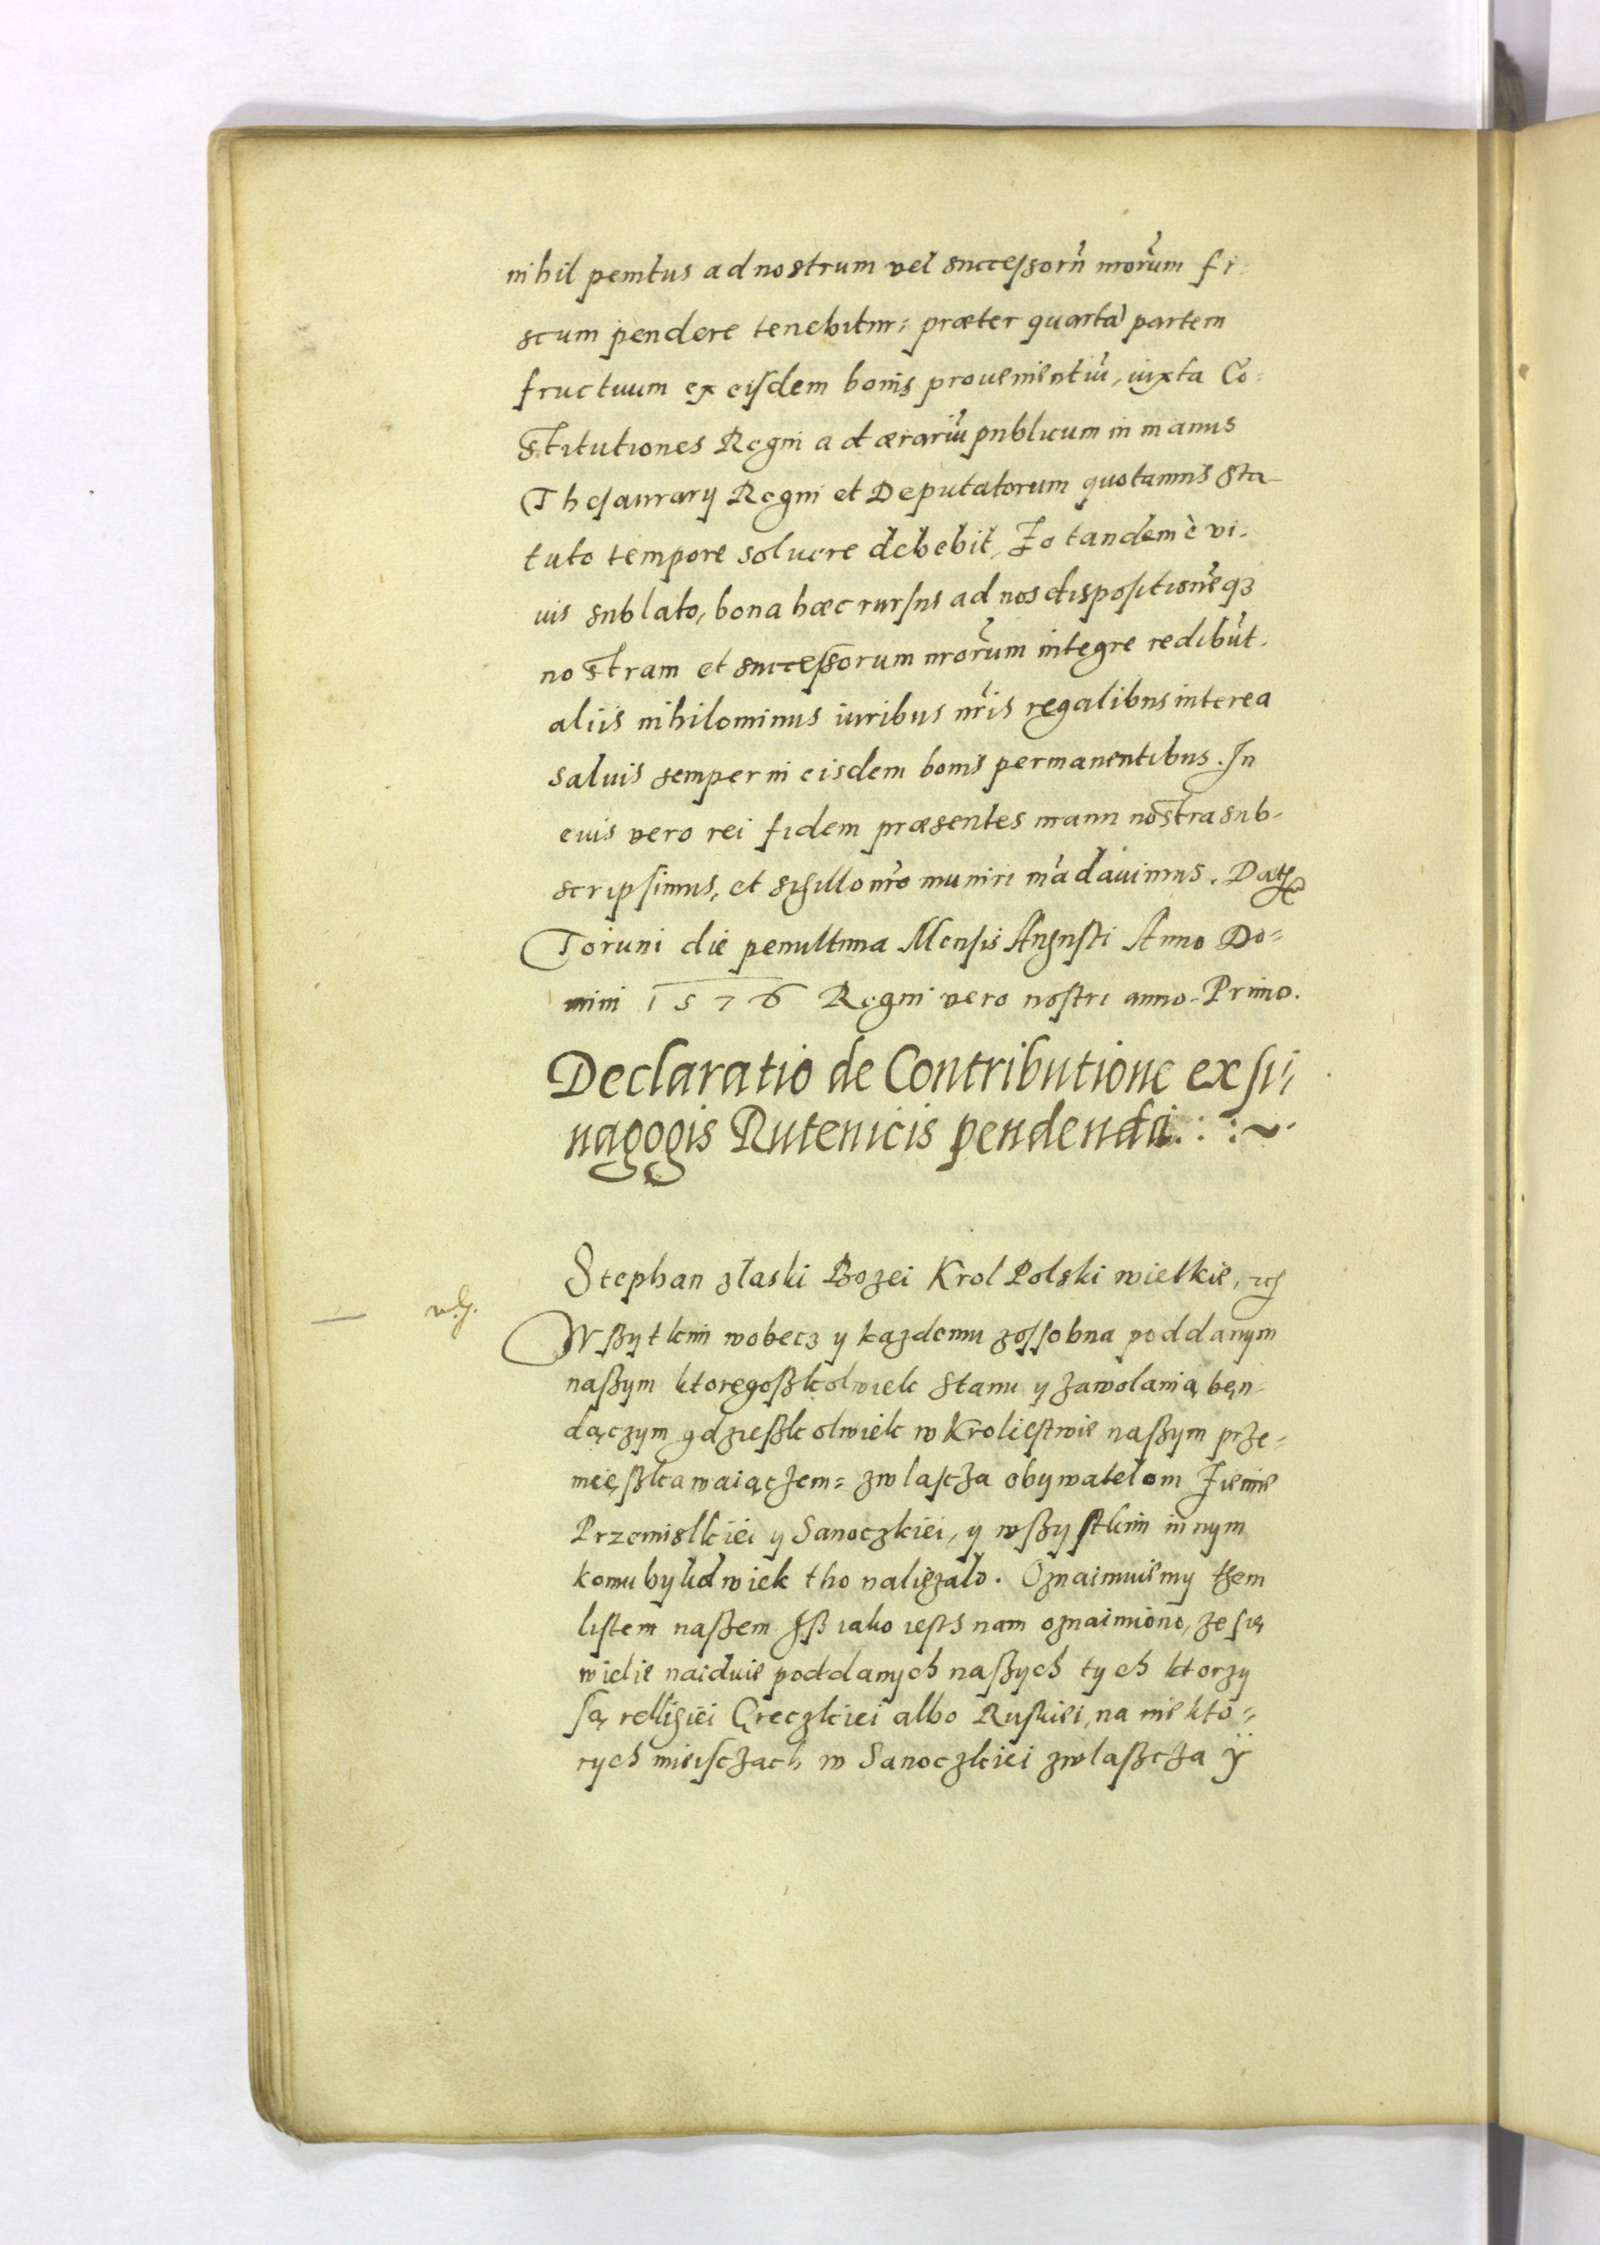 nihil penitus ad nostrum vel successorũ nrorum fi-
scum pendere tenebitur: præter quartã partem
fructuum ex eisdem bonis prouenientiũ, iuxta Cõ-
stitutiones Regni ad ærariũ publicum in manus
Thesaurarij Regni et Deputatorum quotannis sta-
tuto tempore soluere debebit, Eo tandem è vi-
uis sublato, bona hæc rursus ad nos dispositionẽq3
nostram et successorum nrorum integre redibũt.
aliis nihilominus iuribus nris regalibus interea
saluis semper in eisdem bonis permanentibus. In
cuius vero rei fidem præsentes manu nostra sub-
scripsimus, et sigillo nro muniri mãdauimus. Dat
Toruni die penultima Mensis Augusti Anno Do-
mini 1576 Regni vero nostri anno Primo.
Declaratio de Contributione ex si-
nagogis Rutenicis pendenda
Stephan złaski Bozei Krol Polski wielkie,
Wßytkim wobecz y kazdemu zossobna poddanym
naßym ktoregoßkolwiek stanu y zawolanią bęn-
dączym gdzießkolwiek w Kroliestwie naßym prze-
mießkawaiączem: zwlascza obywatelom Ziemie
Przemislkiei y Sanoczkiei, y wßystkim innym
komu bykolwiek tho nalięzalo. Oznaimuiemy tzem
listem naßem Iß iako iests nam oznaimiono, ze się
wielie naiduie poddanych naßych tych ktorzy
są relligiei Gręczkiei albo Ruskiei, na niekto-
rych mieisczach w Sanoczkiei zwlaßcza y